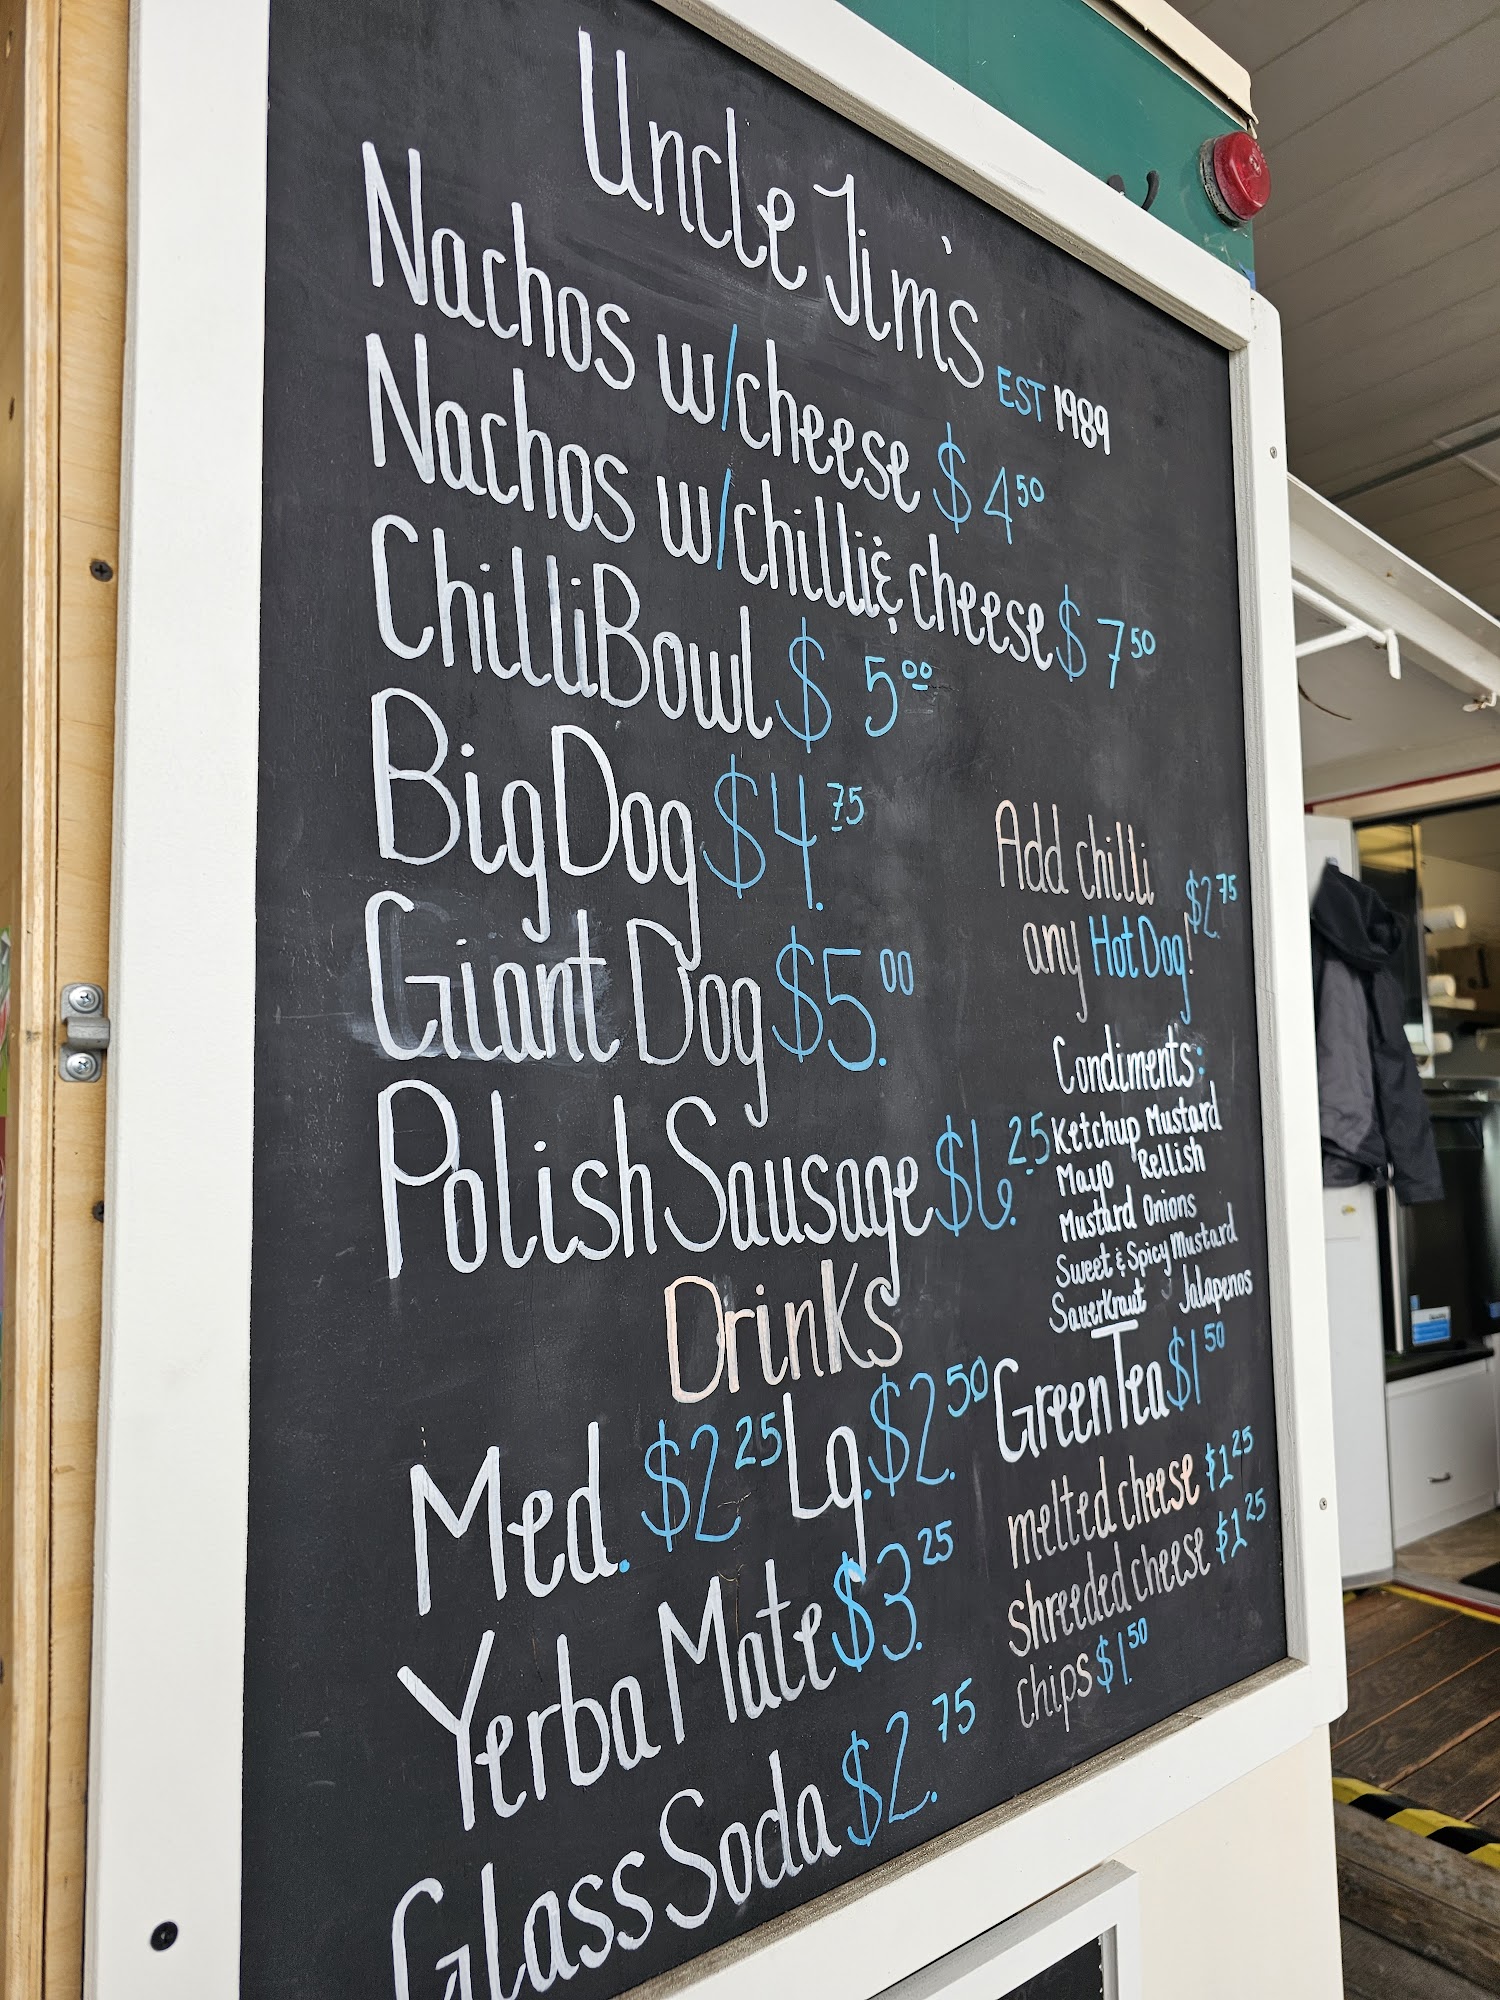 Uncle Jim's EST 1989
Nachos w/cheese $4.50
Nachos w/chilli & cheese $7.50
Chilli Bowl $5.00
Big Dog $4.75
Giant Dog $5.00
Polish Sausage $6.25
Add chilli
any Hot Dog! $2.75
Condiments:
Ketchup Mustard
Mayo Rellish
Mustard Onions
Sweet & Spicy Mustard
SauerKraut Jalapenos
DrinKs
Med. $2.25 Lg. $2.50
Yerba Mate $3.25
Glass Soda $2.75
Green Tea $1.50
melted cheese $1.25
shreeded cheese $1.25
chips $1.50